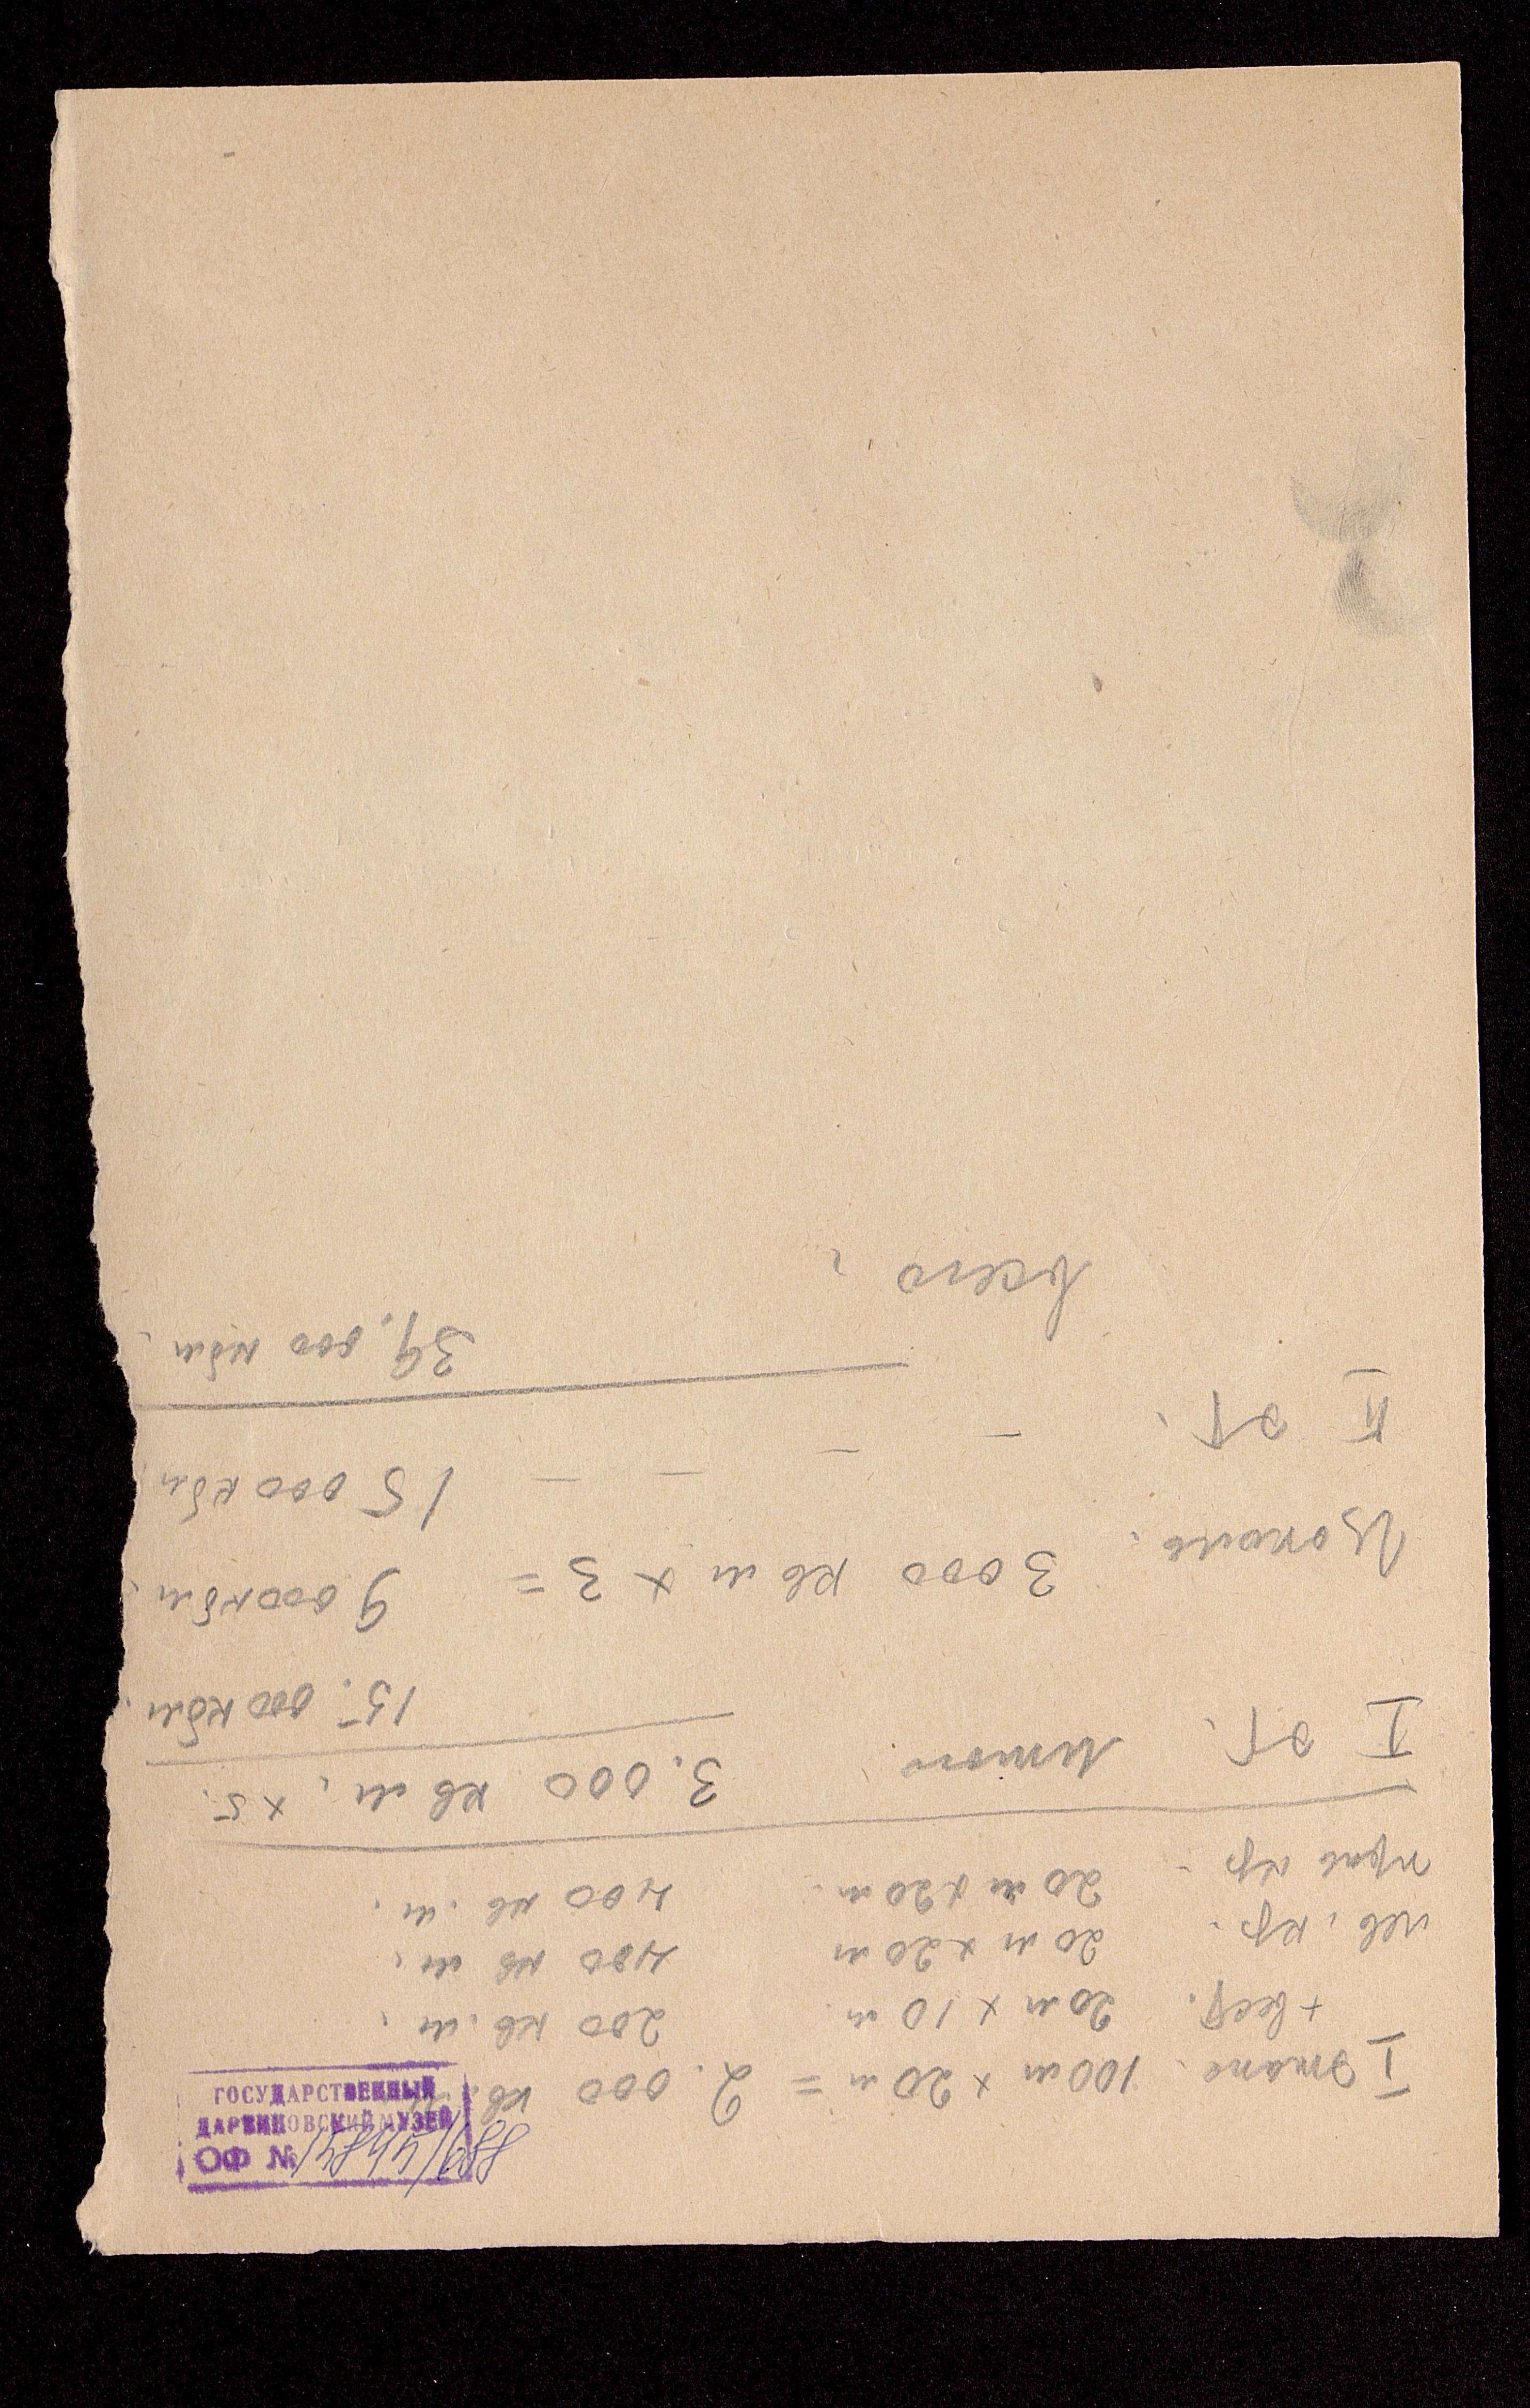 I Этаж. 100 м × 20 м = 2.000 кв. м.
+ вест. 20 м × 10 м. 200 кв. м.
лев. кр. 20 м × 20 м 400 кв м.
прав кр. 20 м × 20 м. 400 кв. м.
I эт. Итого 3.000 кв м. × 5.
15.000 кбм.
Цоколь. 3000 кв м × 3 = 9000 кбм.
II эт. – – – – 15000 кбм
39.000 кбм.
Всего.
ГОСУДАРСТВЕННЫЙ
ДАРВИНОВСКИЙ МУЗЕЙ
ОФ №